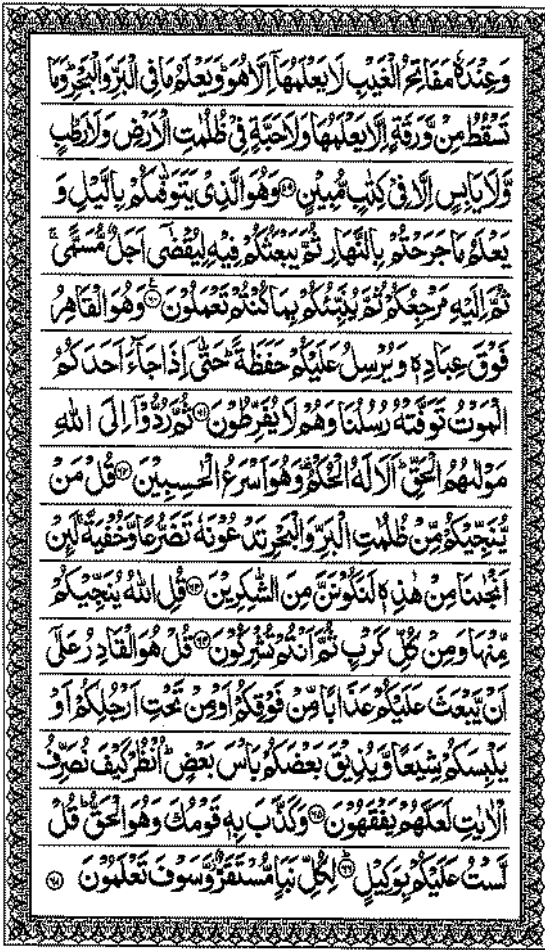 وَعِنْدَهٗ مَفَاتِحُ الْغَيْبِ لَا يَعْلَمُهَاۤ اِلَّا هُوَ ؕ وَيَعْلَمُ مَا فِى الْبَرِّ وَالْبَحْرِ ؕ وَمَا
تَسْقُطُ مِنْ وَّرَقَةٍ اِلَّا يَعْلَمُهَا وَلَا حَبَّةٍ فِىْ ظُلُمٰتِ الْاَرْضِ وَلَا رَطْبٍ
وَّلَا يَابِسٍ اِلَّا فِىْ كِتٰبٍ مُّبِيْنٍ ۝۵۹ وَهُوَ الَّذِىْ يَتَوَفّٰٮكُمْ بِالَّيْلِ وَ
يَعْلَمُ مَا جَرَحْتُمْ بِالنَّهَارِ ثُمَّ يَبْعَثُكُمْ فِيْهِ لِيُقْضٰٓى اَجَلٌ مُّسَمًّى ۚ
ثُمَّ اِلَيْهِ مَرْجِعُكُمْ ثُمَّ يُنَبِّئُكُمْ بِمَا كُنْتُمْ تَعْمَلُوْنَ ۝۶۰ وَهُوَ الْقَاهِرُ
فَوْقَ عِبَادِهٖ وَيُرْسِلُ عَلَيْكُمْ حَفَظَةً ؕ حَتّٰٓى اِذَا جَآءَ اَحَدَكُمُ
الْمَوْتُ تَوَفَّتْهُ رُسُلُنَا وَهُمْ لَا يُفَرِّطُوْنَ ۝۶۱ ثُمَّ رُدُّوْۤا اِلَى اللّٰهِ
مَوْلٰٮهُمُ الْحَقِّ ؕ اَلَا لَهُ الْحُكْمُ وَهُوَ اَسْرَعُ الْحٰسِبِيْنَ ۝۶۲ قُلْ مَنْ
يُّنَجِّيْكُمْ مِّنْ ظُلُمٰتِ الْبَرِّ وَالْبَحْرِ تَدْعُوْنَهٗ تَضَرُّعًا وَّخُفْيَةً ۚ لَئِنْ
اَنْجٰٮنَا مِنْ هٰذِهٖ لَنَكُوْنَنَّ مِنَ الشّٰكِرِيْنَ ۝۶۳ قُلِ اللّٰهُ يُنَجِّيْكُمْ
مِّنْهَا وَمِنْ كُلِّ كَرْبٍ ثُمَّ اَنْتُمْ تُشْرِكُوْنَ ۝۶۴ قُلْ هُوَ الْقَادِرُ عَلٰٓى
اَنْ يَّبْعَثَ عَلَيْكُمْ عَذَابًا مِّنْ فَوْقِكُمْ اَوْ مِنْ تَحْتِ اَرْجُلِكُمْ اَوْ
يَلْبِسَكُمْ شِيَعًا وَّيُذِيْقَ بَعْضَكُمْ بَاْسَ بَعْضٍ ؕ اُنْظُرْ كَيْفَ نُصَرِّفُ
الْاٰيٰتِ لَعَلَّهُمْ يَفْقَهُوْنَ ۝۶۵ وَكَذَّبَ بِهٖ قَوْمُكَ وَهُوَ الْحَقُّ ؕ قُلْ
لَّسْتُ عَلَيْكُمْ بِوَكِيْلٍ ؕ ۝۶۶ لِكُلِّ نَبَاٍ مُّسْتَقَرٌّ ۫ وَّسَوْفَ تَعْلَمُوْنَ ۝۶۷